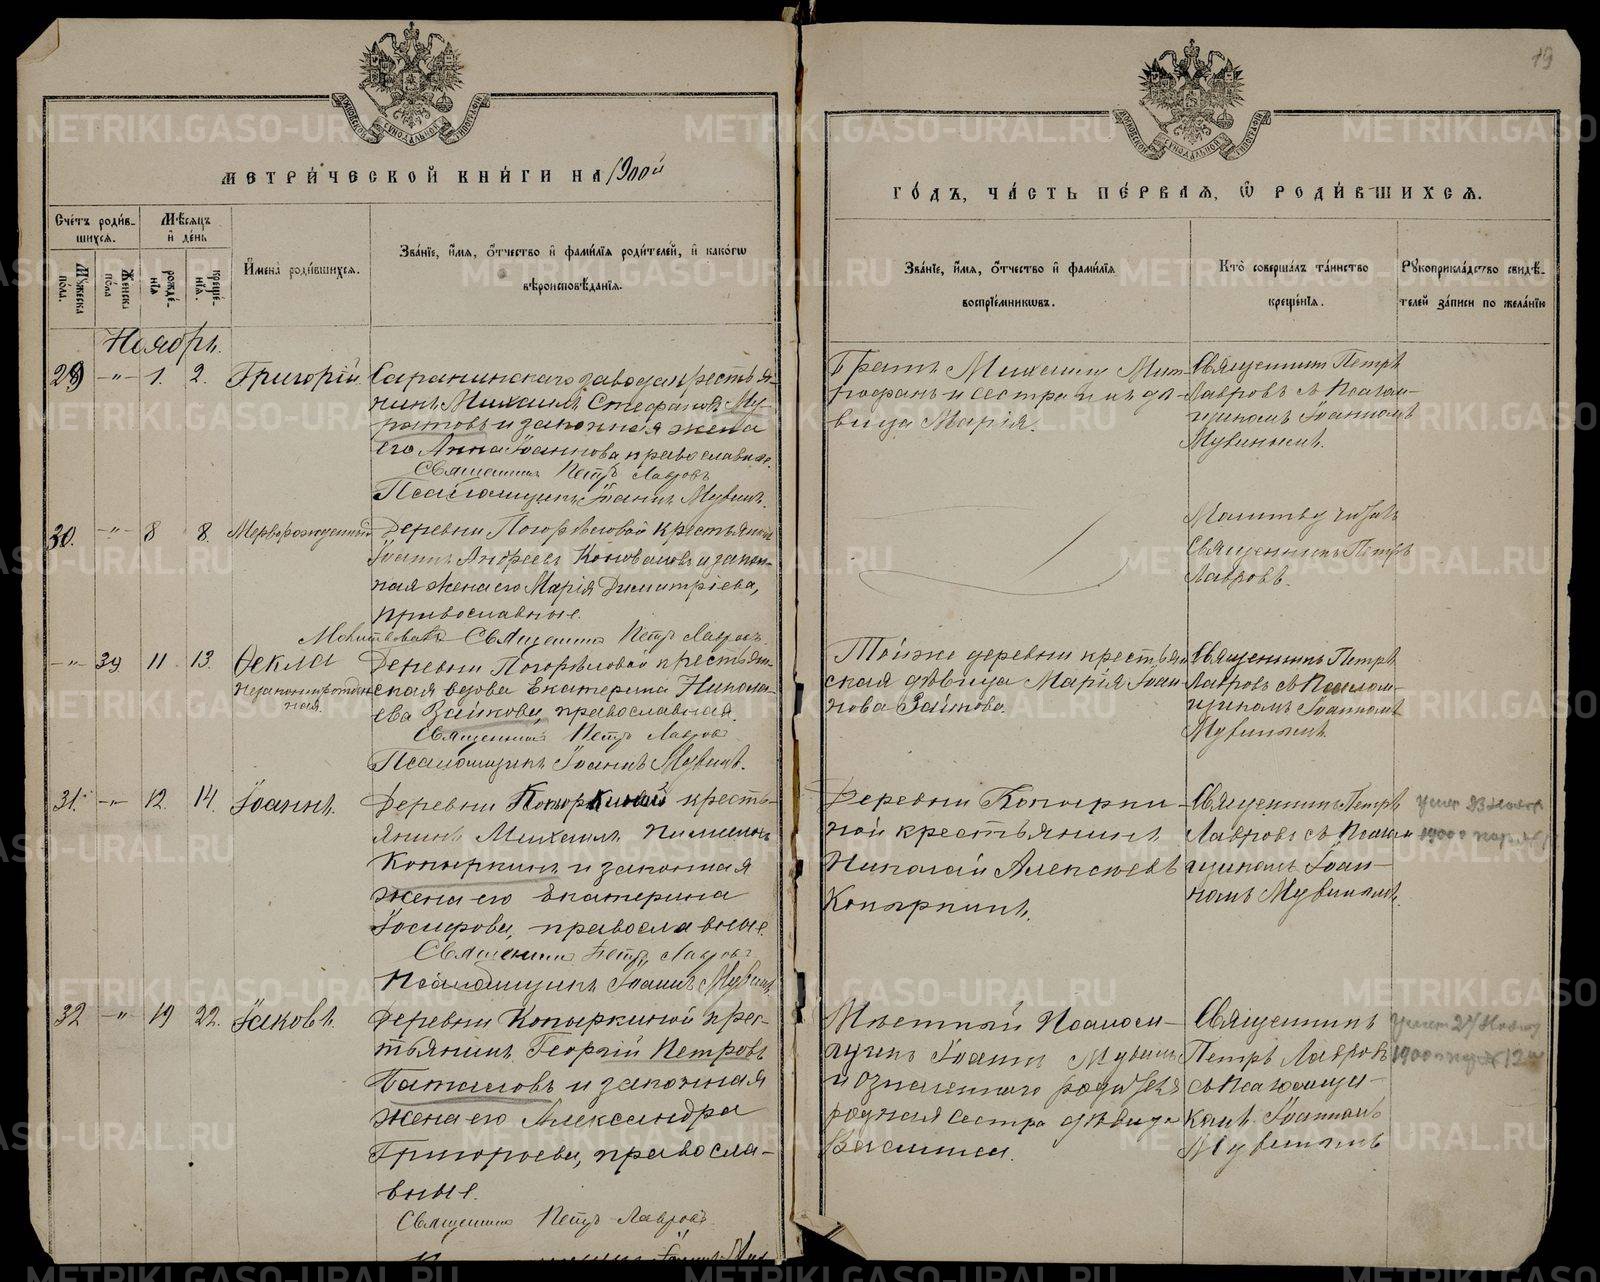 19
МЕТРИ́ЧЕСКОЙ КНИ́ГИ НА 1900й
ГО́ДЪ, ЧА́СТЬ ПЕ́РВАѦ, Ѿ РОДИ́ВШИХСѦ.
Сче́тъ роди́в-
шихсѧ.
Мꙋ́жеска по́ла.
Же́нска по́ла
Мѣ́сѧцъ и҆ де́нь
рожде́-нїѧ
креще́-нїѧ.
И҆мена̀ роди́вшихсѧ.
Зва́нїе, и҆́мѧ, ѻ҆́тчество и҆ фами́лїѧ роди́телей, и҆ како́гѡ
вѣроисповѣ́данїѧ.
Зва́нїе, и҆́мѧ, ѻ҆́тчество и҆ фами́лїѧ
воспрїе́мникѡвъ.
Кто̀ соверша́лъ та́инство
креще́нїѧ.
Рꙋкоприкла́дство свидѣ́-
телей за́писи по жела́нїю
Ноябрь.
29 -"- 1. 2. Григорій.
Саранинскаго завода крестья-
нинъ Михаилъ Стефановъ Му-
ратовъ и законная жена
его Анна Іоаннова православные.
Священникъ Петръ Лавровъ
Псаломщикъ Іоаннъ Мувинъ.
Братъ Михаила Мит-
рофанъ и сестра ихъ дѣ-
вица Марія.
Священникъ Петръ
Лавровъ съ Псалом-
щикомъ Іоанномъ
Мувинымъ.
30. -"- 8 8. Мертворожденный
Деревни Погорѣловой крестьянинъ
Іоаннъ Андреевъ Коноваловъ и закон-
ная жена его Марія Димитріева,
православные.
Молитвовалъ Священникъ Петръ Лавровъ
Молитву читалъ
Священникъ Петръ
Лавровъ.
-"- 39 11 13. Ѳекла
незаконнорожден-
ная
Деревни Погорѣловой крестьян-
ская вдова Екатерина Никола-
ева Заикова, православная.
Священникъ Петръ Лавровъ
Псаломщикъ Іоаннъ Мувинъ.
Тойже деревни крестьян-
ская дѣвица Марія Іоан-
нова Заикова.
Священникъ Петръ
Лавровъ съ Псалом-
щикомъ Іоанномъ
Мувинымъ
31. -"- 12. 14. Іоаннъ.
Деревни Копыркиной кресть-
янинъ Михаилъ Пименовъ
Копыркинъ и законная
жена его Екатерина
Іосифова, православные.
Священникъ Петръ Лавровъ
Псаломщикъ Іоаннъ Мувинъ
Деревни Копырки-
ной крестьянинъ
Николай Алексѣевъ
Копыркинъ.
Священникъ Петръ
Лавровъ съ Псалом-
щикомъ Іоан-
номъ Мувинымъ.
умер 23 Нояб
1900
32 -"- 19 22. Іаковъ.
Деревни Копыркиной крес-
тьянинъ Георгій Петровъ
Баталовъ и законная
жена его Александра
Григорьева, православ-
вные.
Священникъ Петръ Лавровъ
Мѣстный Псалом-
щикъ Іоаннъ Мувинъ
и означеннаго родителя
родная сестра дѣвица
Василиса.
Священникъ
Петръ Лавровъ
съ Псаломщи-
комъ Іоанномъ
Мувинымъ
умер 27 Нояб
1900
METRIKI.GASO-URAL.RU